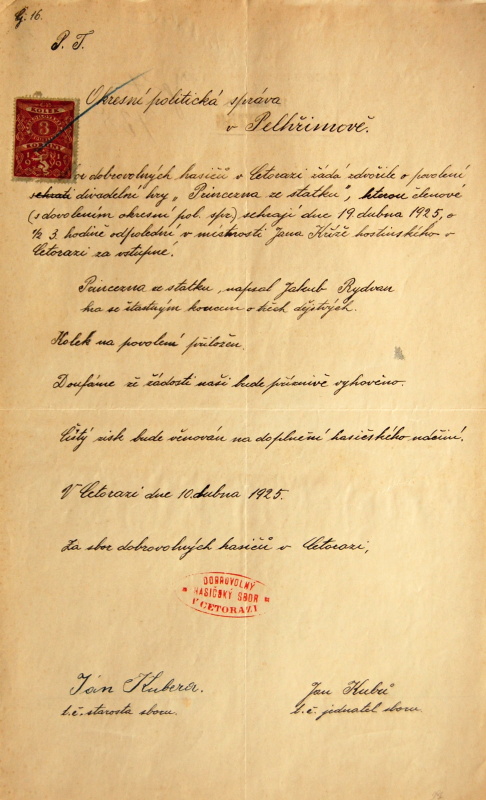 Čj. 16.
P. T.
Okresní politická správa
v Pelhřimově.
KOLEK
3
KORUNY
Sbor dobrovolných hasičů v Cetorazi žádá zdvořile o povolení
sehrati divadelní hry „Princezna ze statku", kterou členové
(s dovolením okresní pol. spr.) sehrají dne 19. dubna 1925, o
1/2 3. hodině odpolední v místnosti Jana Kříže hostinského v
Cetorazi za vstupné.
Princezna ze statku, napsal Jakub Rydvan
hra se šťastným koncem o třech dějstvých.
Kolek na povolení přiložen.
Doufáme že žádosti naší bude příznivě vyhověno.
Čistý zisk bude věnován na doplnění hasičského náčiní.
V Cetorazi dne 10. dubna 1925.
Za sbor dobrovolných hasičů v Cetorazi,
DOBROVOLNÝ
HASIČSKÝ SBOR
V CETORAZI
Ján Kubera.
t. č. starosta sboru.
Jan Kubů
t. č. jednatel sboru.